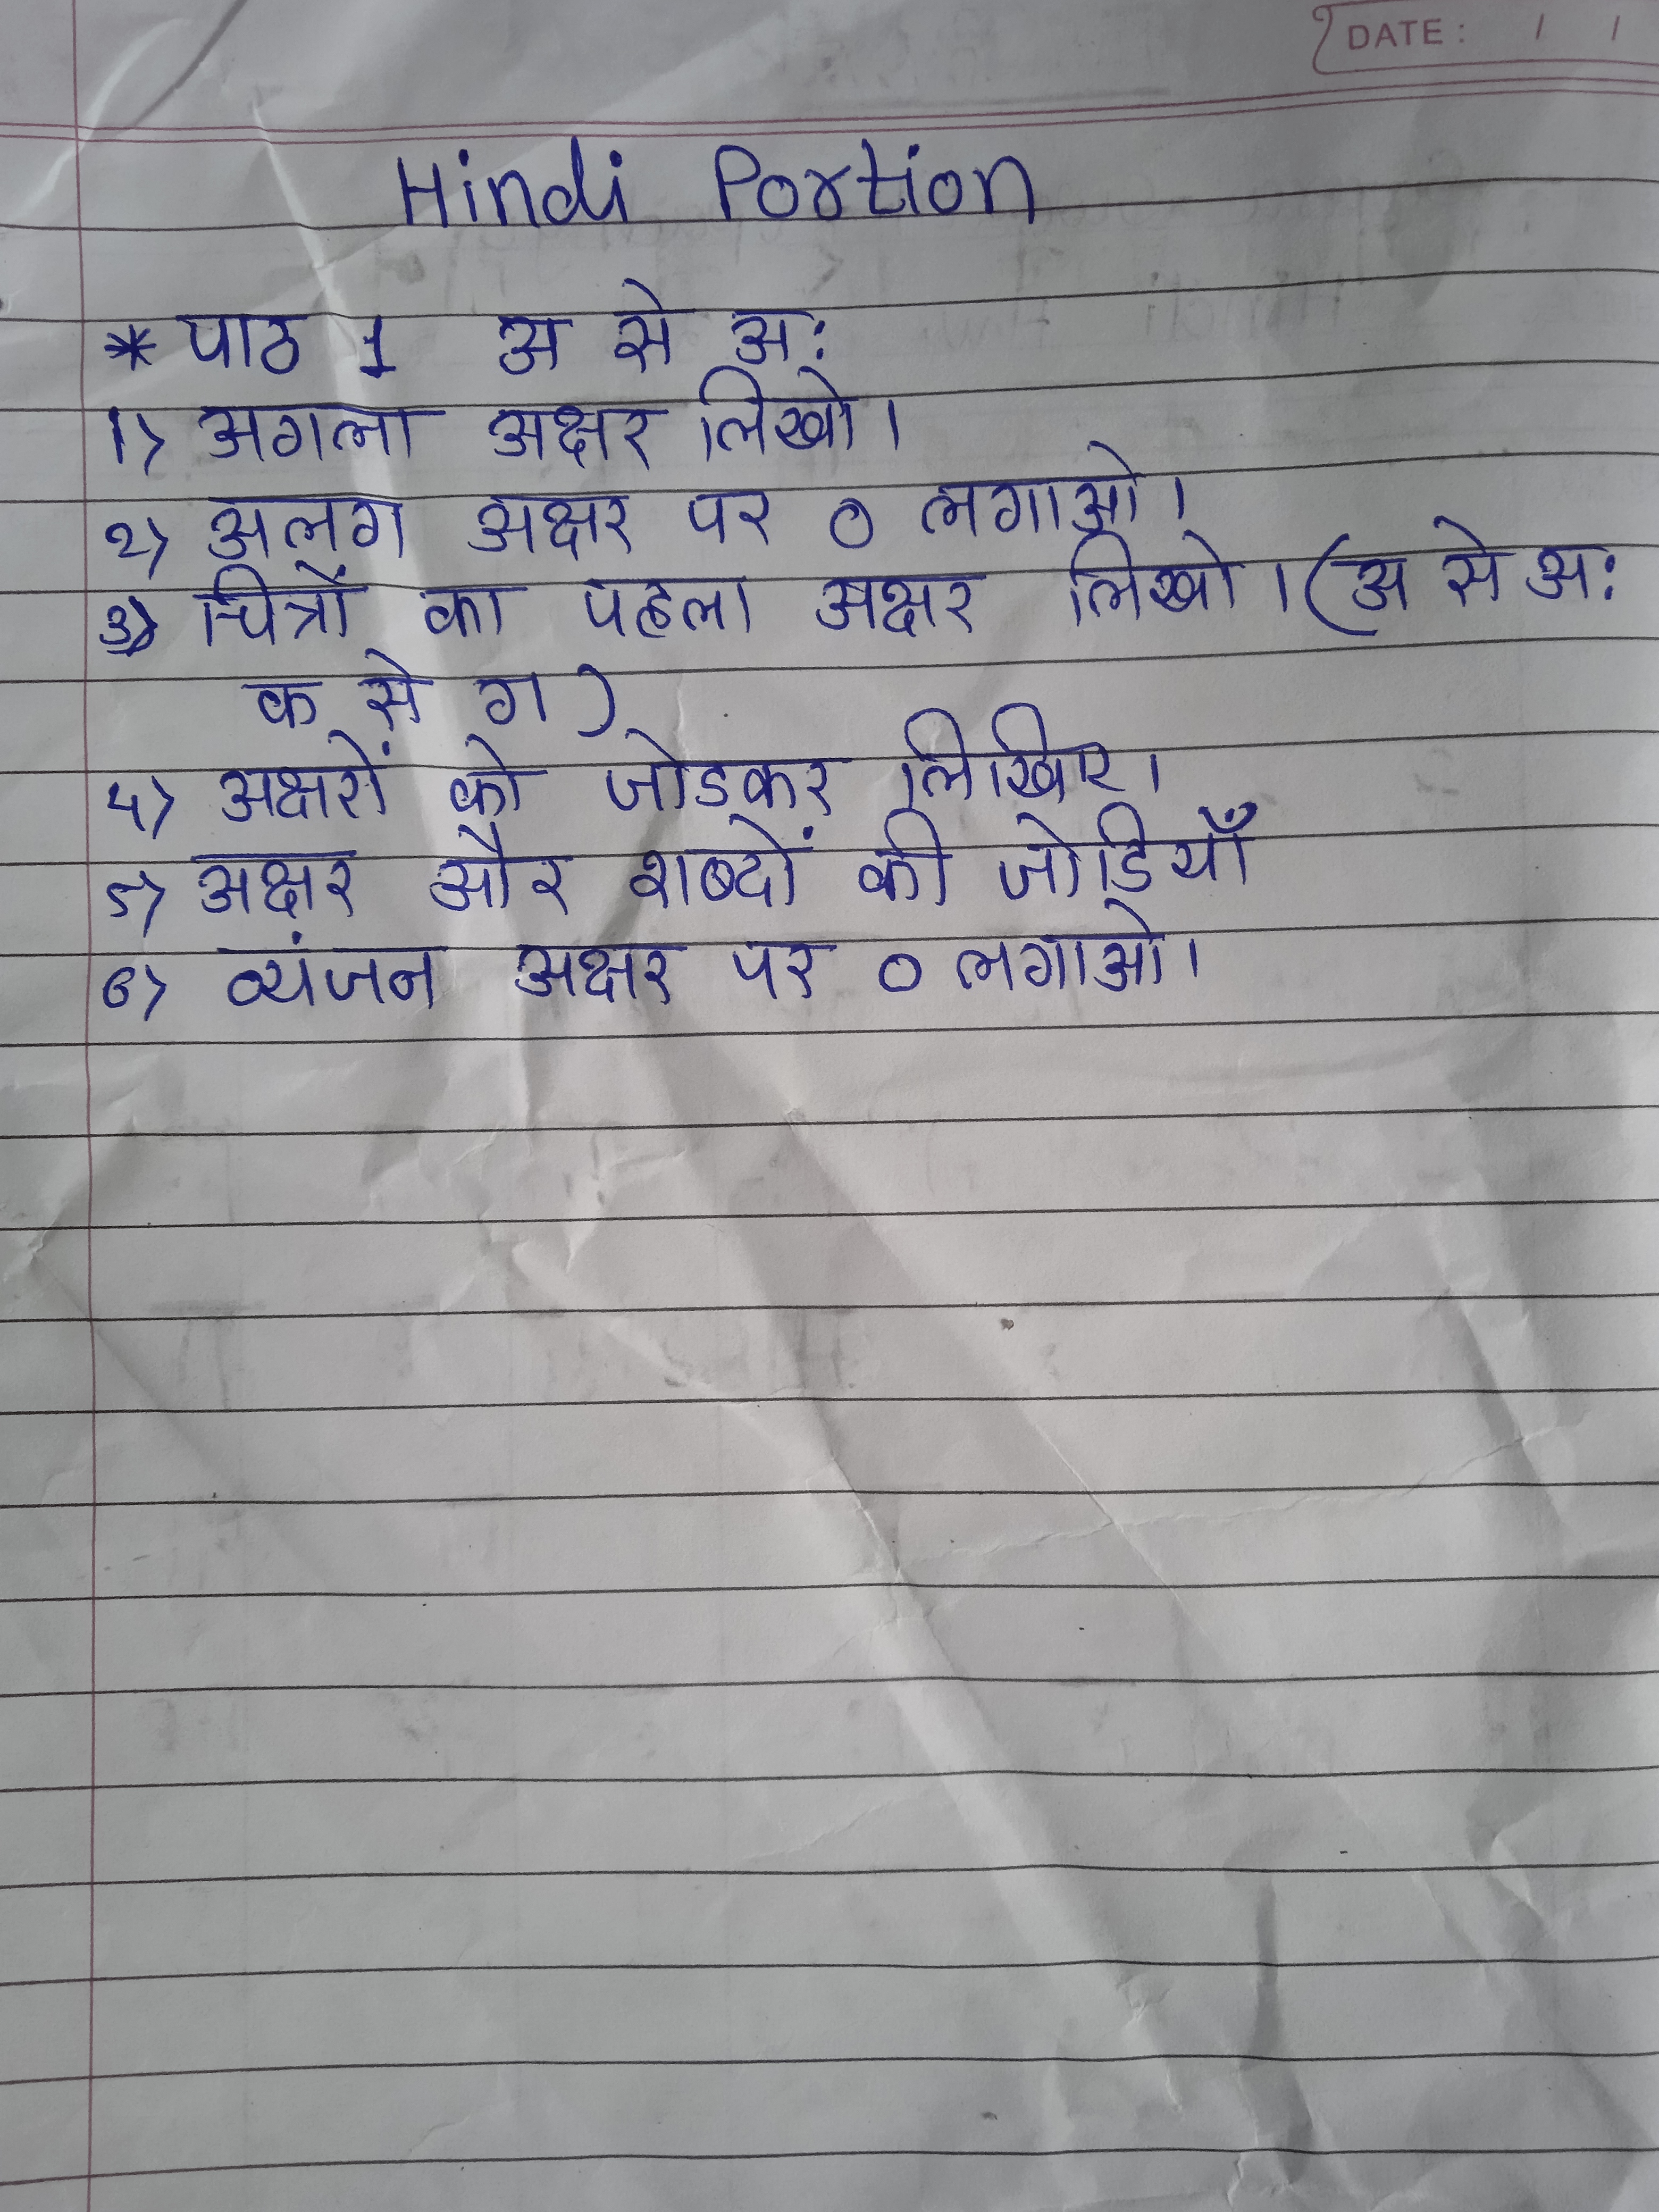 DATE: / /
Hindi Portion
* पाठ 1 अ से अः
1) अगला अक्षर लिखो।
2) अलग अक्षर पर ० लगाओ।
3) चित्रों का पहला अक्षर लिखो। (अ से अः
क से ग)
4) अक्षरों को जोडकर लिखिए।
5) अक्षर और शब्दों की जोडियाँ
6) व्यंजन अक्षर पर ० लगाओ।